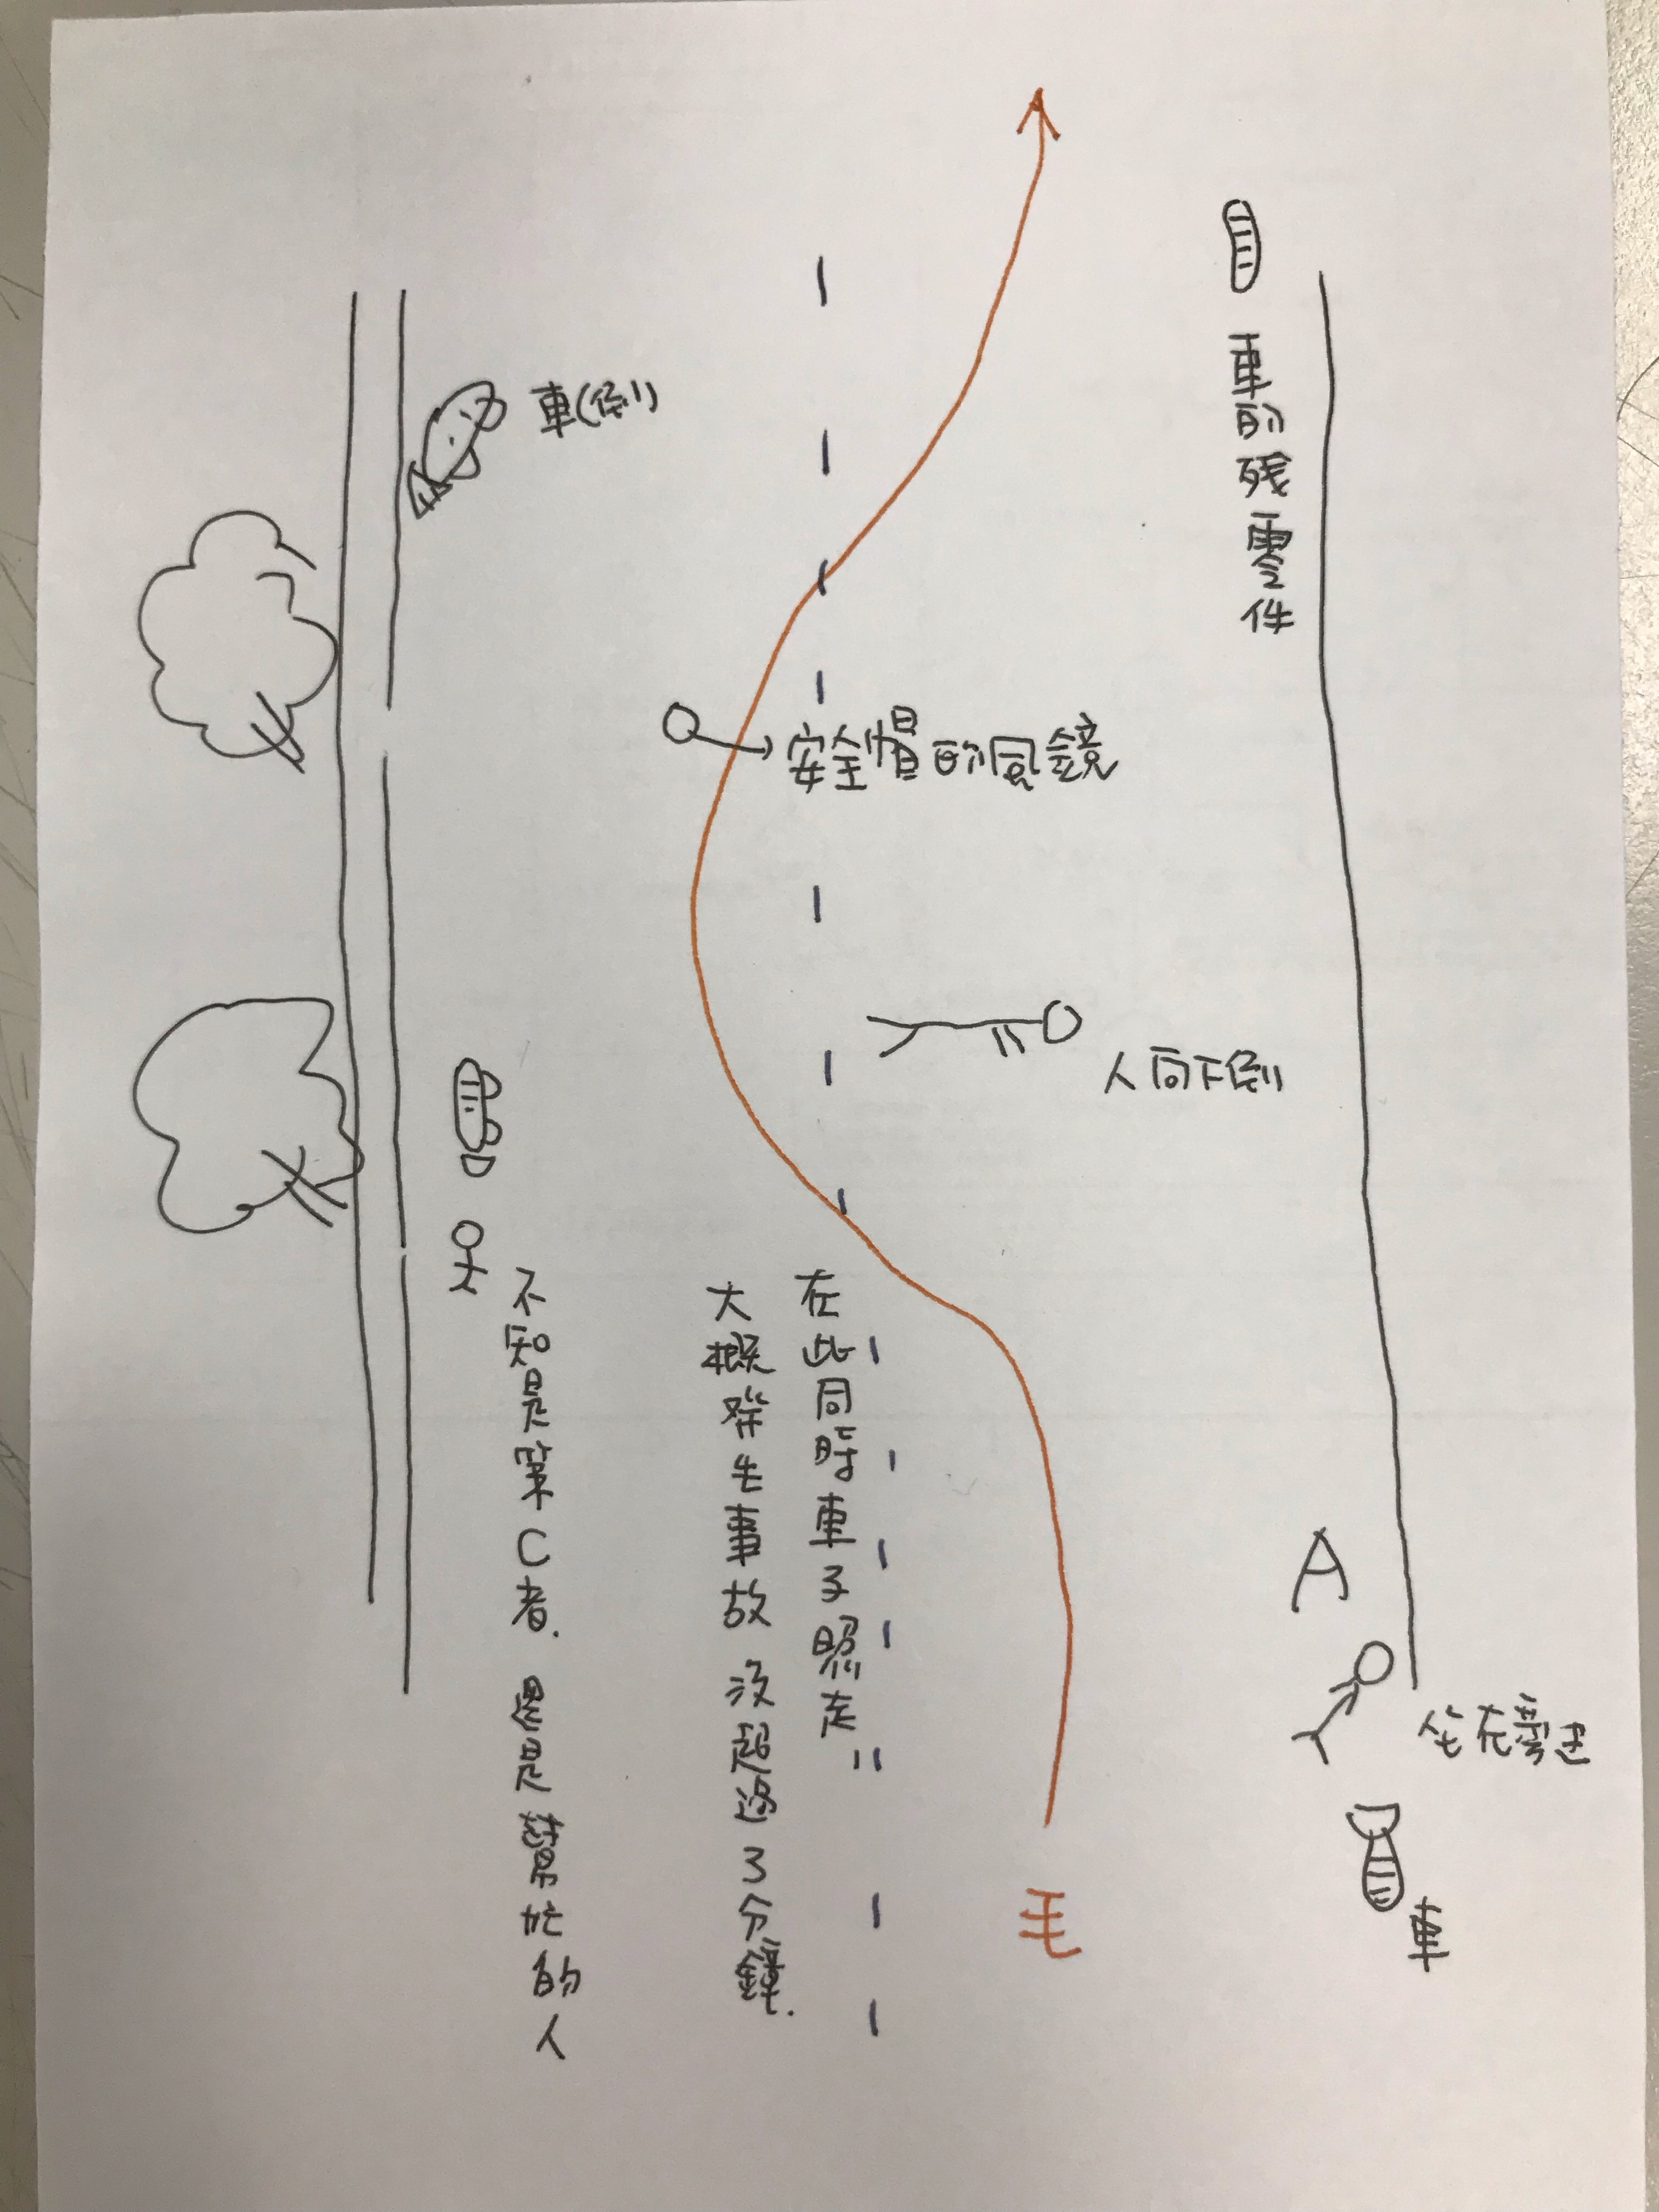 車(倒)
車的残零件
安全帽的風鏡
人向下倒
在此同時車子照走
大概發生事故 沒超過3分鐘.
不知是第C者. 還是幫忙的人
A
坐在旁边
車
毛